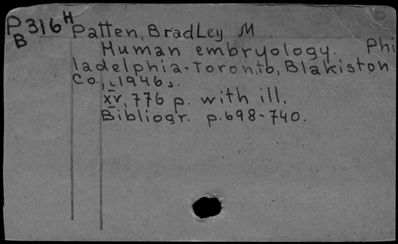 P316H Patten, Bradley M
B
Human embryology. Phi
ladelphia-Toronto, Blakiston
Co., [1946].
XV, 776 p. with ill.
Bibliogr. p.698-740.